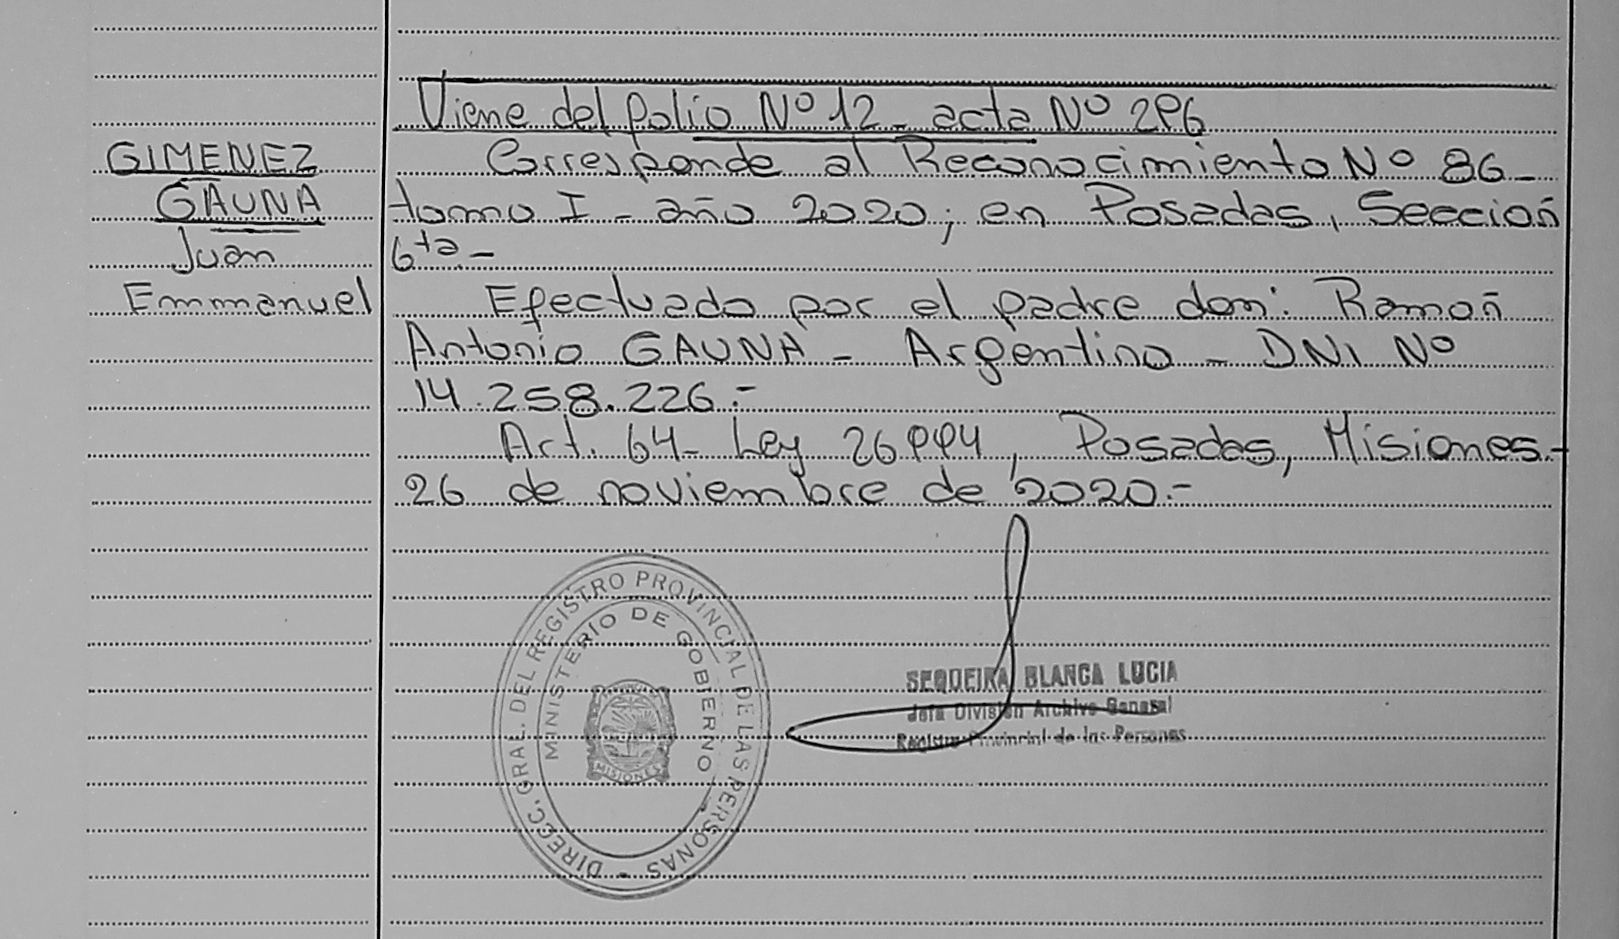 GIMENEZ
GAUNA
Juan
Emmanuel
Viene del folio Nº 12 - acta Nº 296
Corresponde al Reconocimiento Nº 86 -
tomo I - año 2020; en Posadas, Sección
6ta. -
Efectuado por el padre don: Ramón
Antonio GAUNA - Argentino - DNI Nº
14.258.226.-
Art. 64 - Ley 26994, Posadas, Misiones.-
26 de noviembre de 2020.-
DIRECC. GRAL. DEL REGISTRO PROVINCIAL DE LAS PERSONAS -
MINISTERIO DE GOBIERNO
MISIONES
SEQUEIRA BLANCA LUCIA
Jefa División Archivo General
Registro Provincial de las Personas